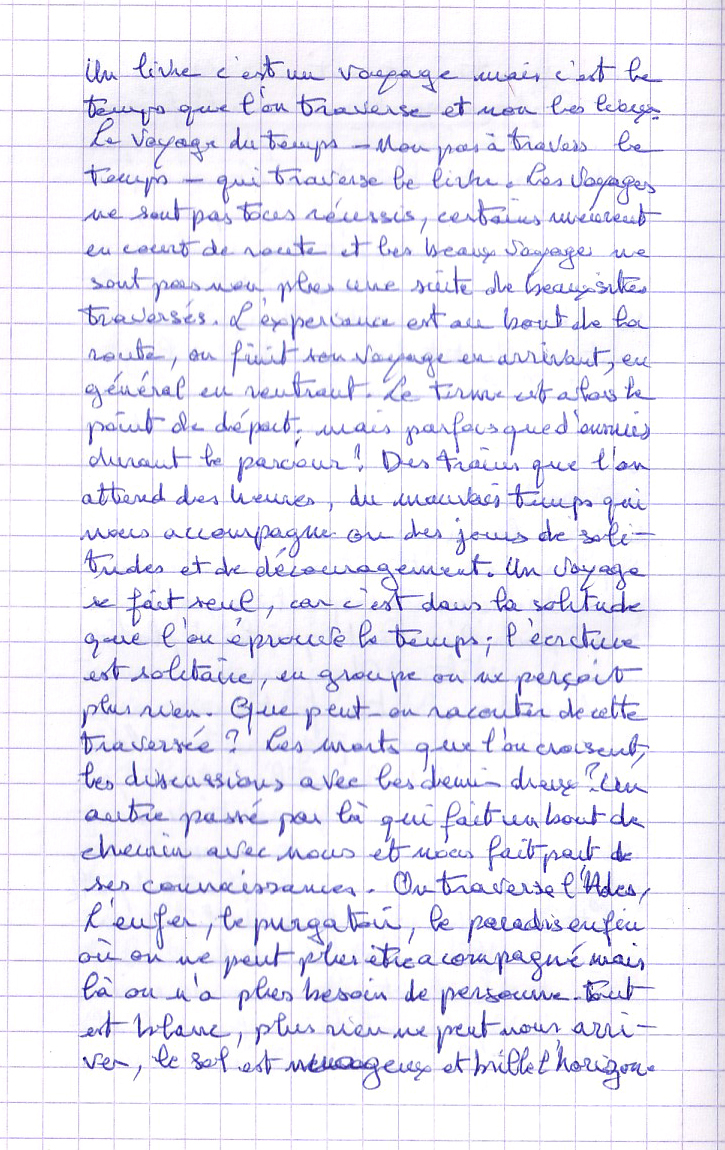 Un livre c'est un voyage mais c'est le
temps que l'on traverse et non les lieux.
Le voyage du temps – Non pas à travers le
temps – qui traverse le livre. Les voyages
ne sont pas tous réussis, certains meurent
en court de route et les beaux voyages ne
sont pas non plus une suite de beaux sites
traversés. L'expérience est au bout de la
route, on finit son voyage en arrivant, en
général en rentrant. Le terme est alors le
point de départ, mais parfois que d'ennuies
durant le parcour! Des trains que l'on
attend des heures, du mauvais temps qui
nous accompagne ou des jours de soli-
tudes et de découragement. Un voyage
se fait seul, car c'est dans la solitude
que l'on éprouve le temps; l'écriture
est solitaire, en groupe on ne perçoit
plus rien. Que peut-on raconter de cette
traversée? Les morts que l'on croisent,
les discussions avec les demi-dieux? Un
autre passé par là qui fait un bout de
chemin avec nous et nous fait part de
ses connaissances. On traverse l'Ades,
l'enfer, le purgatoir, le paradis enfin
où on ne peut plus être acompagné mais
là on n'a plus besoin de personne. Tout
est blanc, plus rien ne peut nous arri-
ver, le sol est nuageux et brille l'horizon.